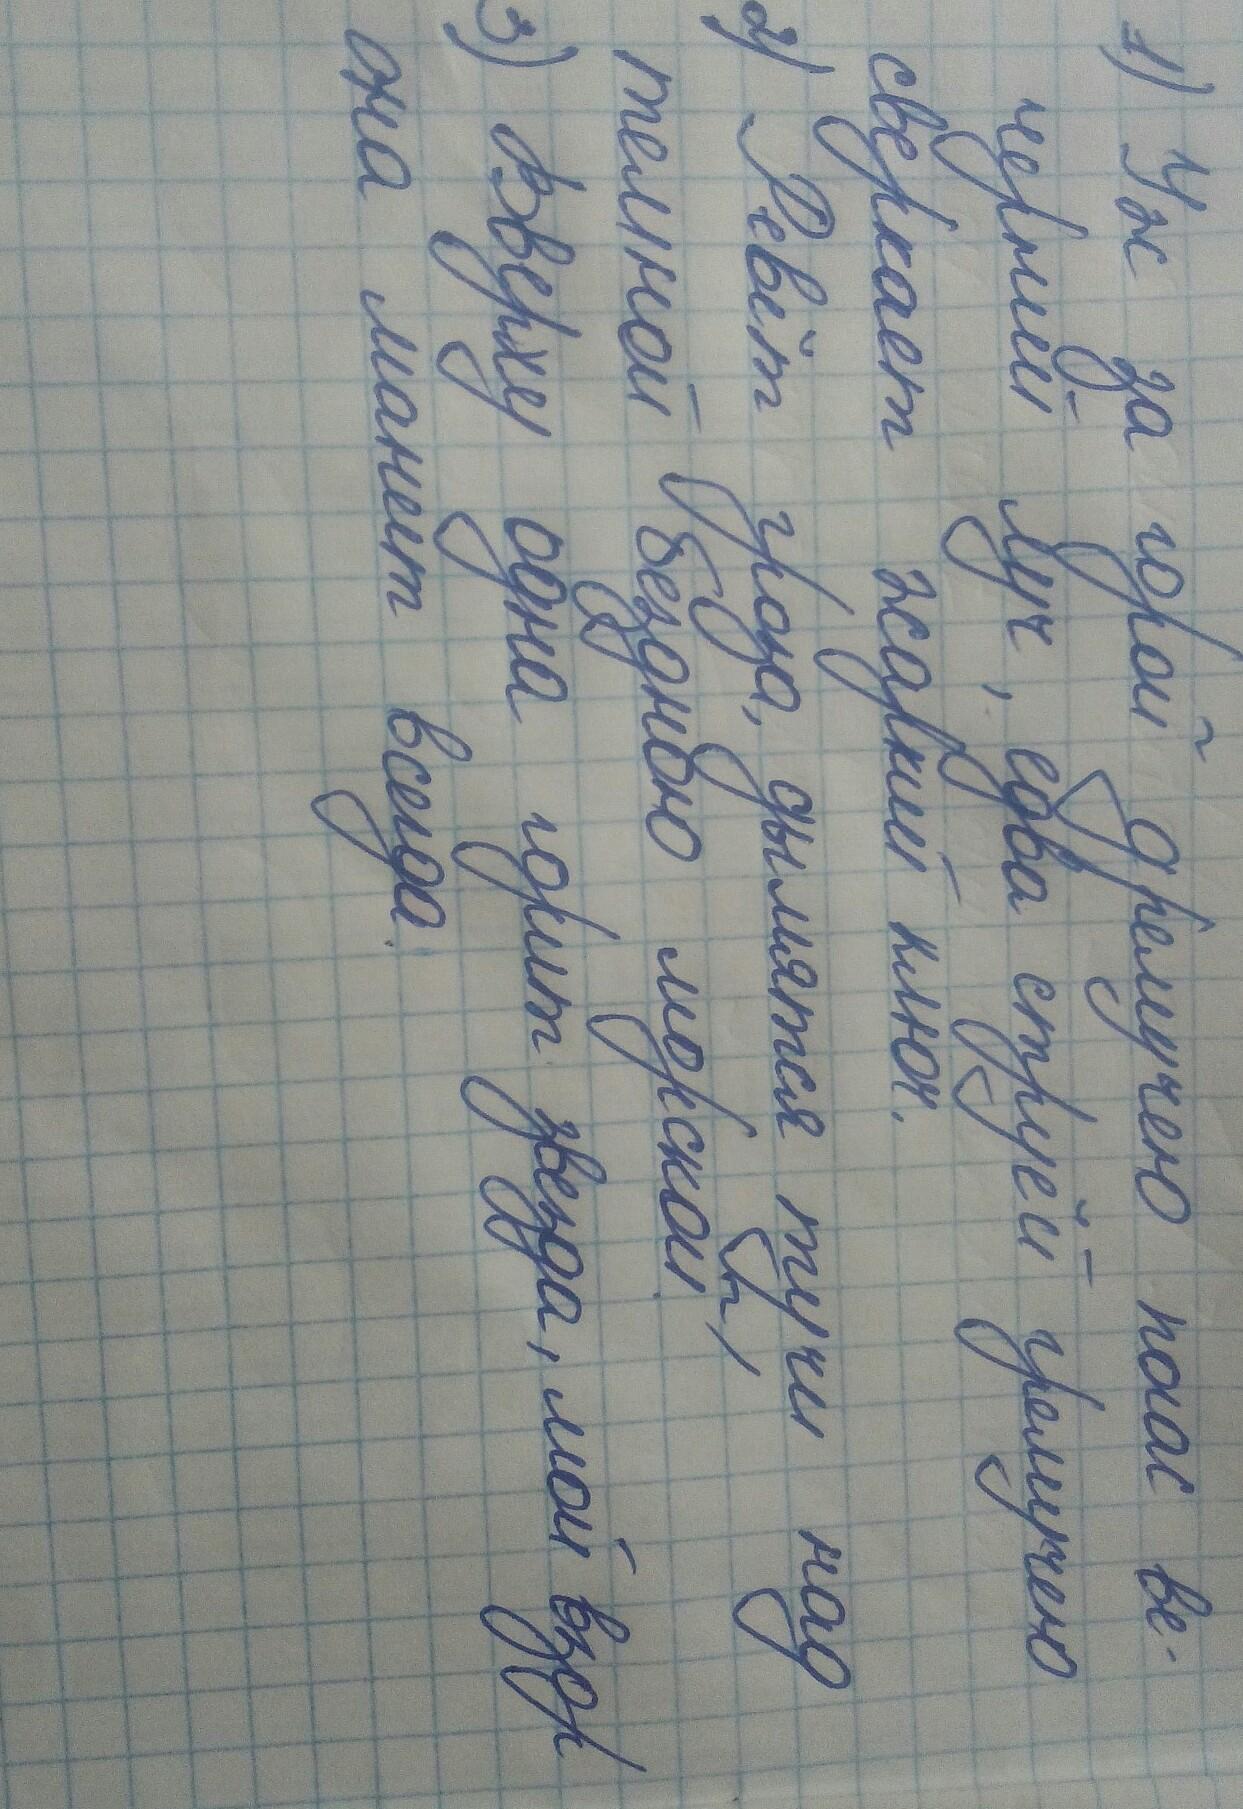 1) Уж за горой дремучею погас ве-
черний луч, едва струей гремучею
сверкает жаркий ключ.
2) Ревёт гроза, дымятся тучи над
темной бездною морской
3) Вверху одна горит звезда, мой взор
она манет всегда.